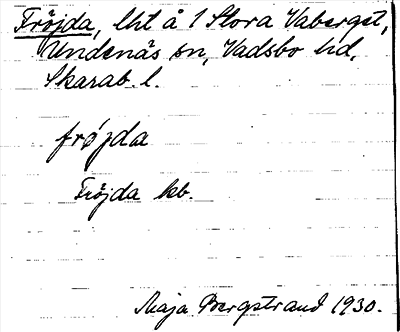 Fröjda, lht å 1 Stora Vabergst,
Undenäs sn, Vadsbo hd,
Skarab. l.
frǿjda
Fröjda kb.
Maja Bergstrand 1930.